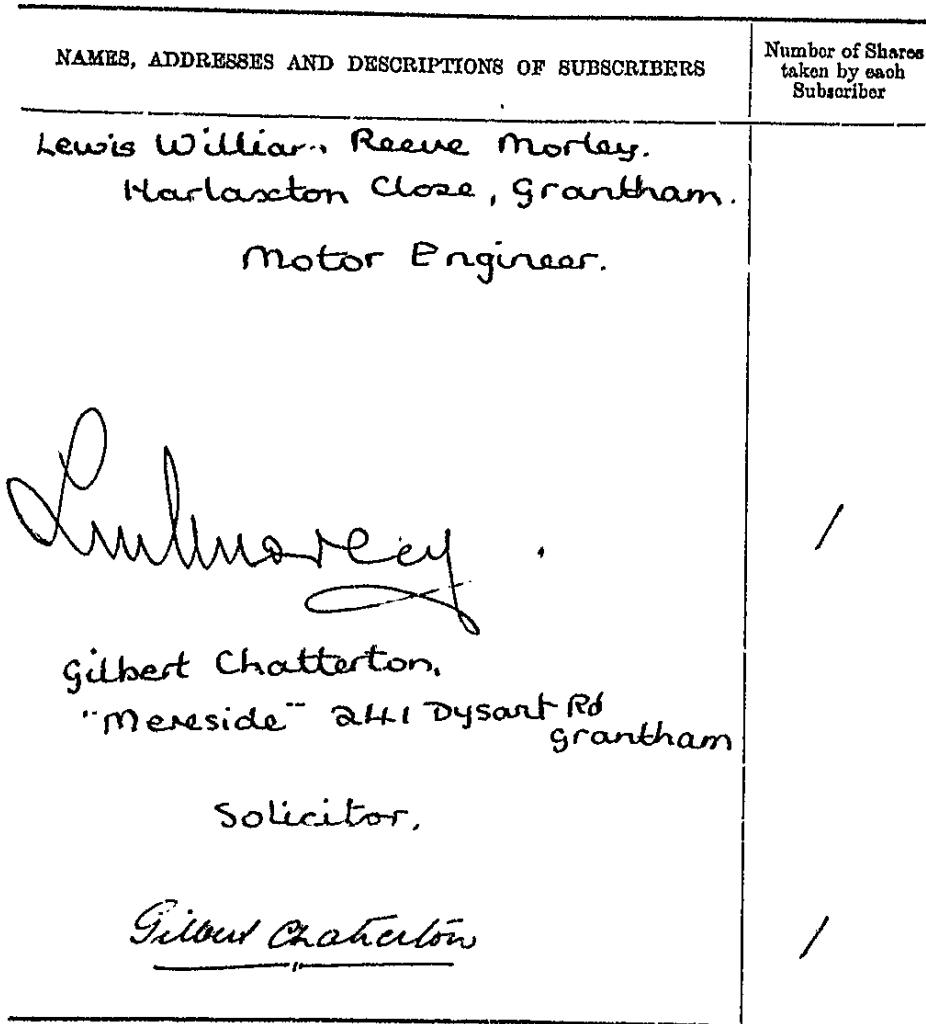 NAMES, ADDRESSES AND DESCRIPTIONS OF SUBSCRIBERS
Number of Shares
taken by each
Subscriber
Lewis William Reeve Morley.
Harlaxton Close, Grantham.
Motor Engineer.
LWRMorley
1
Gilbert Chatterton.
"Mereside" 241 Dysart Rd
Grantham
Solicitor.
Gilbert Chatterton
1